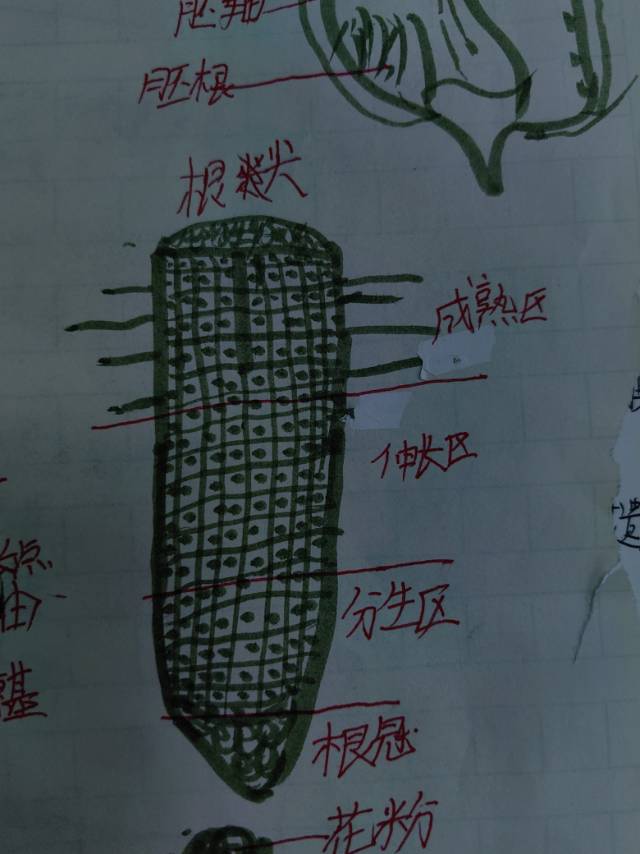 胚轴
胚根
根尖
成熟区
伸长区
分生区
根冠
花粉
点
由
基
遗